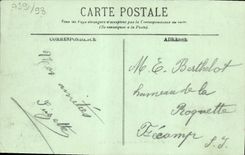 A29/93
CARTE POSTALE
Tous les Pays étrangers n'acceptent pas la Correspondance au recto
(Se renseigner à la Poste)
CORRESPONDANCE
ADRESSE
Mes amitiés
M. E. Berthelot
hameau de la
Roquette
Fécamp
S. I.